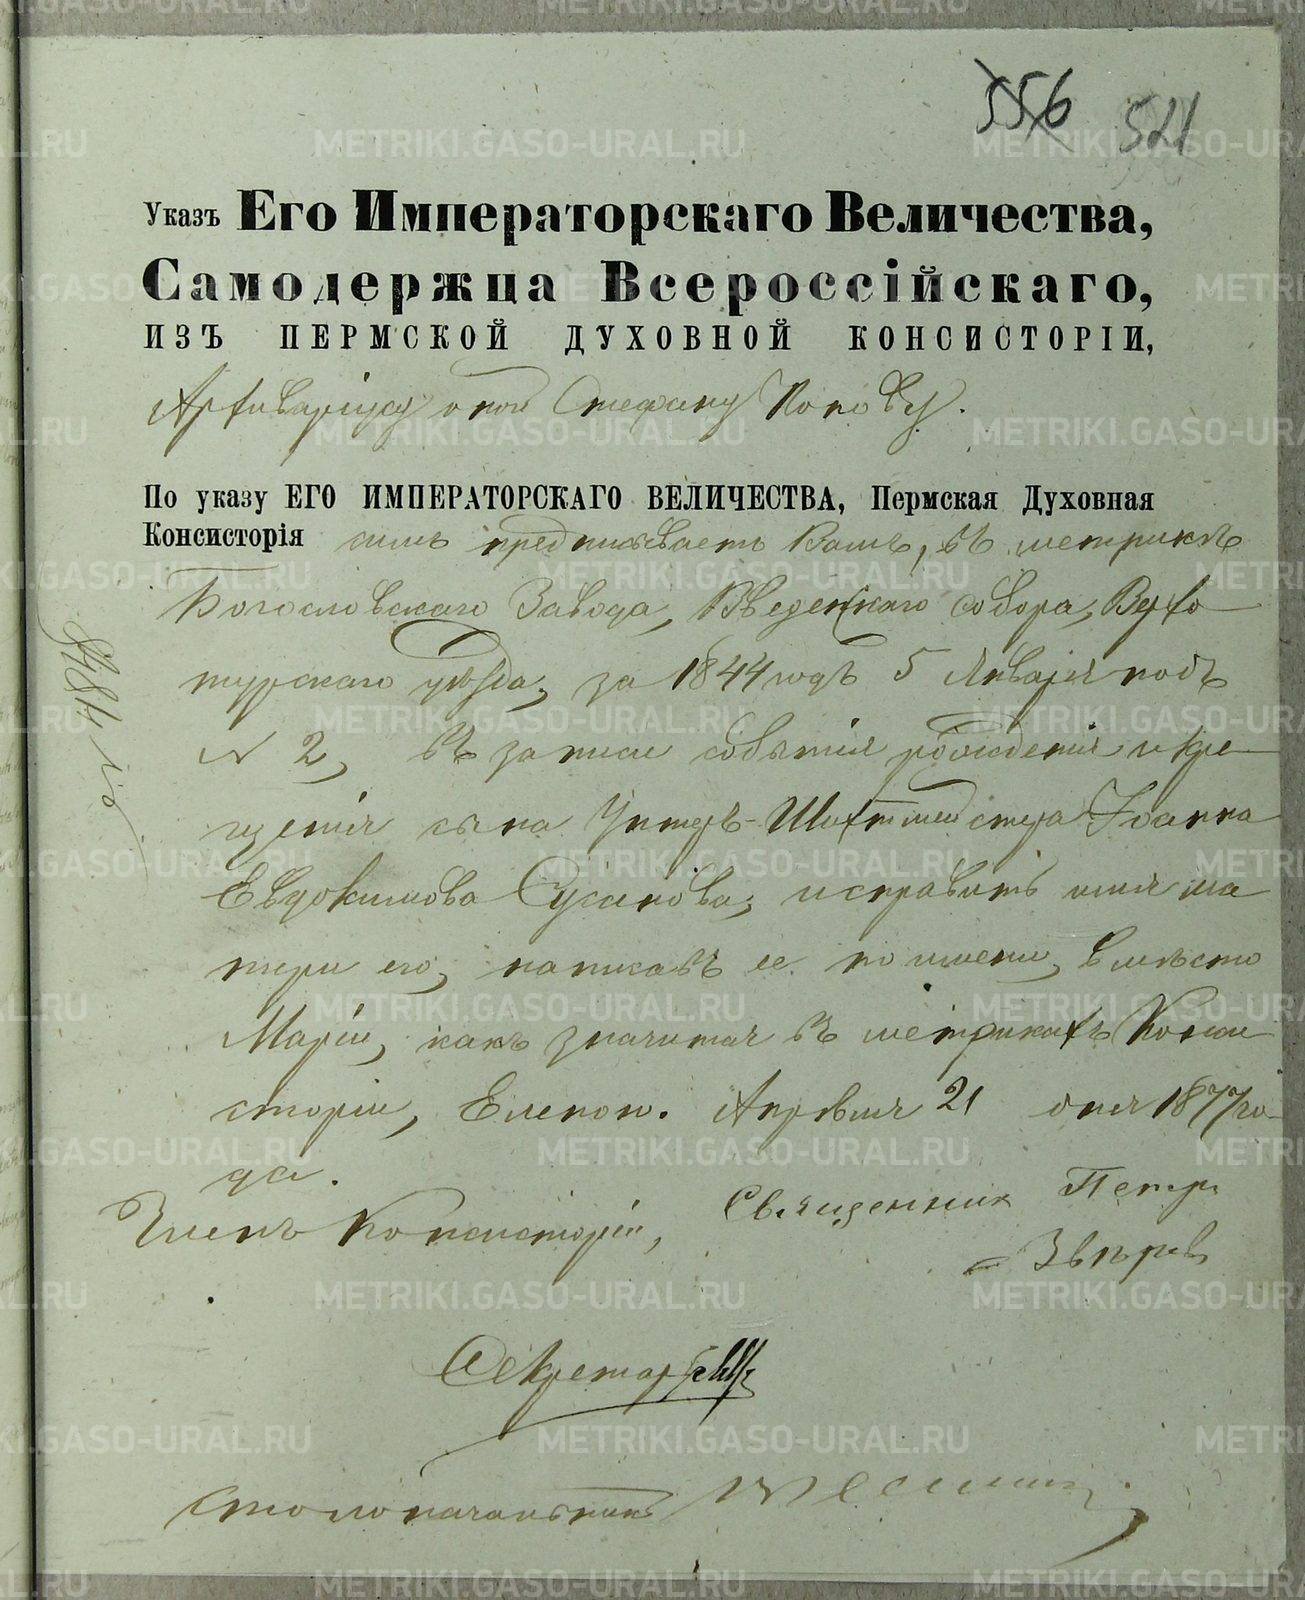 556 521
Указъ Его Императорскаго Величества,
Самодержца Всероссійскаго,
ИЗЪ ПЕРМСКОЙ ДУХОВНОЙ КОНСИСТОРІИ,
Архиваріусу оной Стефану Попову.
По указу ЕГО ИМПЕРАТОРСКАГО ВЕЛИЧЕСТВА, Пермская Духовная
Консисторія симъ предписываетъ Вамъ, въ метрикѣ
Богословскаго Завода, Введенскаго собора, Верхо
турскаго уѣзда, за 1844 годъ 5 Января подъ
N 2, въ записи событія рожденія и кре
щенія сына Унтеръ-Шихтмейстера Іоанна
Евдокимова, исправить имя ма
тери его, написавъ ее по имени, вмѣсто
Маріи, какъ значится въ метрикахъ Конси
сторіи, Еленой. Апрѣля 21 дня 1877 го-
да.
Членъ Консисторіи, Священник Петръ
Звѣрев
Секретарь
Столоначальникъ
METRIKI.GASO-URAL.RU